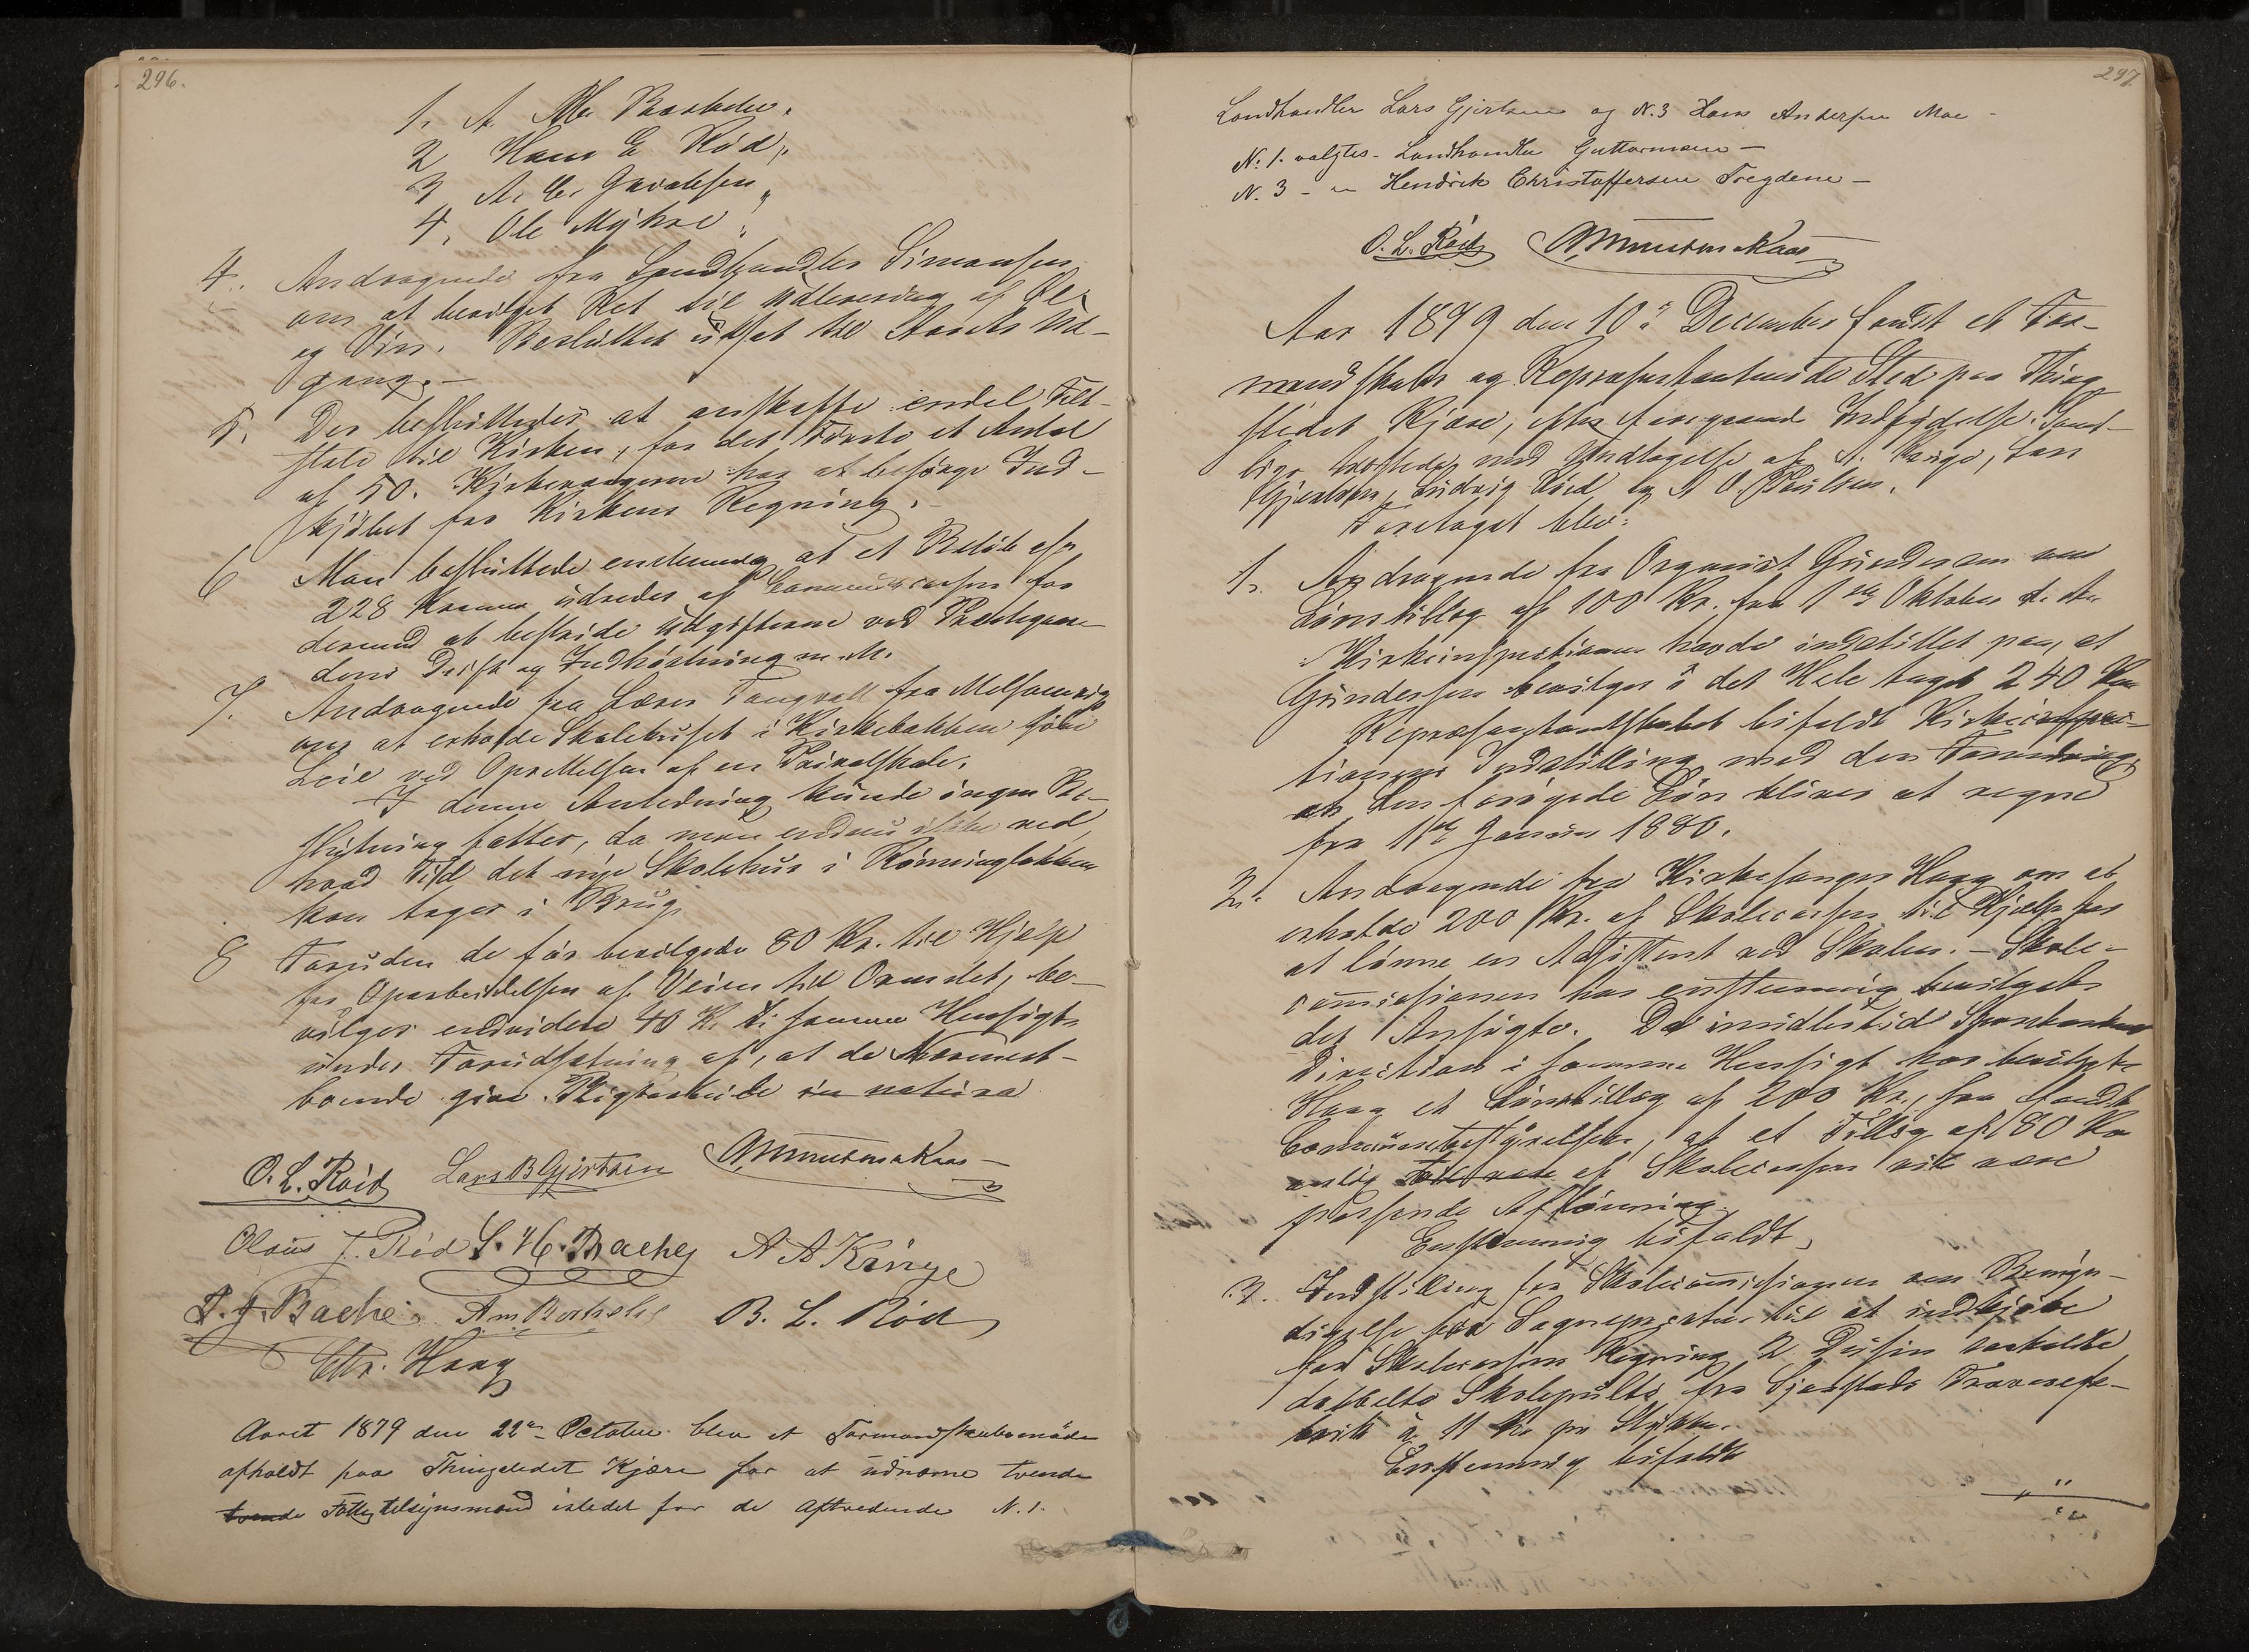 296.
1. A. Mb. Backeber.
2 Hans E Röd,
3 A. Chr Jacobsen
4. Ole Myhre
4. Andragende fra Landhandler Simonsen
om at bevilget Ret til Udleveering af Öl
og Vin. Besluttet udsat til Aarets Ud-
gang.-
5. Der besluttedes at anskaffe endel Felt-
stole til Kirken, for det Første et Antal
af 50. Kirkeværgerne har at besørge Ind-
kjöbet for Kirkens Regning.
6 Man besluttede enstemmig at et Belöb af
228 Kroner udredes af Communecassen for
dermed at bestride Udgifterne ved Præstegaar-
dens Drift og Indhöstning m. M.
7. Andragende fra Lærer Tangvall fra Melsomvig
om at erholde Skolehuset i Kirkebakken
Leie ved Oprettelsen af en Privatskole.
I denne Anledning kunde ingen Be-
slutning fattes, da man endnu ikke ved
hvad Tid det nye Skolehus i Rönningløkken
kan tages i Brug
8 Foruden de før bevilgede 80 Kr. til Hjelp
for Oparbeidelsen af Veien til Ormelet, be-
vilges endvidere 40 Kr. i samme Hensigt
under Forudsætning af, at de Nærmest-
boende give Pligtarbeide in natura
O. L. Röid Lars B Gjertsen A Mmutsen Kaas
Olaus J. Röd S. H. Bache A A Kringe
T. J. Bache A m Backebe B. L. Röd
Chr. Haag
Aaret 1879 den 22de October blev et Formandskabsmöde
afholdt paa Thingstedet Kjære for at udnævne tvende
tvende Fattigtilsynsmænd istedet for de aftrædende N. 1.
297.
Landhandler Lars Gjertsen og N. 3 Hans Andersen Moe -
N: 1. valgtes - Landhandler Guttormsen -
N. 3 - " Hendrik Christoffersen Tregdene -
O. L. Röid A Mmutsen Kaas
Aar 1879 den 10de December fandt et For-
mandskabs og Repræsentantmöde Sted paa Thing
stedet Kjære, efter foregaaende Indbydelse. Samt-
lige mödte med Undtagelse af A. Kringe, Lars
Gjertsen, Ludvig Röd og A O. Paulsen.
Foretaget blev:
1. Andragende fra Organist Gundersen om
Lönstillæg af 100 Kr. fra 1ste Oktober d. A.
Kirkeinspectionen havde indstillet paa, at
Gundersen bevilges i det Hele taget 240 Kr
Repræsentantskabet bifaldt Kirkeinspec-
tionens Indstilling med den Forandring
at den forögede Lön bliver at regne
fra 1ste Januar 1880.
2. Andragende fra Kirkesanger Haag om at
erholde 200 Kr. af Skolecassen til Hjælp for
at lönne en Assistent ved Skolen. - Skole-
comissionen har enstemmig bevilget
det Ansögte. Da imidlertid Sparebankens
Direction i samme Hensigt har bevilget
Haag et Lönstillæg af 200 Kr., fandt
Communebestyrelsen, at et Tillæg af 80 Kr
aarlig af Skolecassen vil være
passende Aflönning.
Enstemmig bifaldt.
3. Indstilling fra Skolecomissionen om Bemyn-
digelse for Sognepræsten til at indkjöbe
for Skolecassens Regning 2 Dusin enkelte
dobbelte Skolepulte fra Gjerstads Trævarefa-
brik à 11 Kr pr Stykke.
Enstemmig bifaldt